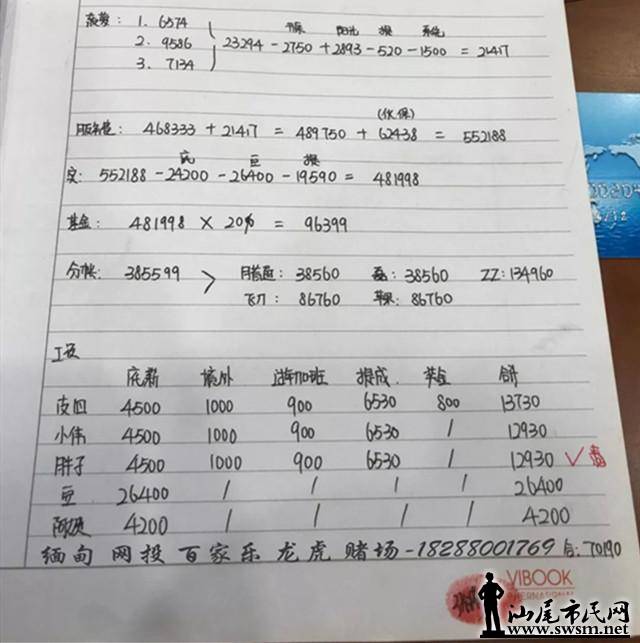 1. 6574
2. 9586
3. 7134
23294 - 2750 + 2893 - 520 - 1500 = 21417
(伙保)
468333 + 21417 = 489750 + 62438 = 552188
底 豆 提
实: 552188 - 24200 - 26400 - 19590 = 481998
基金: 481998 × 20% = 96399
分帐: 385599 > 38560 磊: 38560 ZZ: 134960
飞刀: 86760 86760
工资
底薪 加班 提成 奖金 合计
皮四 4500 1000 900 6530 800 13730
小伟 4500 1000 900 6530 / 12930
胖子 4500 1000 900 6530 / 12930 ✓
豆 26400 / / / / 26400
4200 / / / / 4200
缅甸 网投 百家乐 龙虎 赌场-18288001769 合: 70190
VIBOOK
INTERNATIONAL
汕尾市民网
www.swsm.net